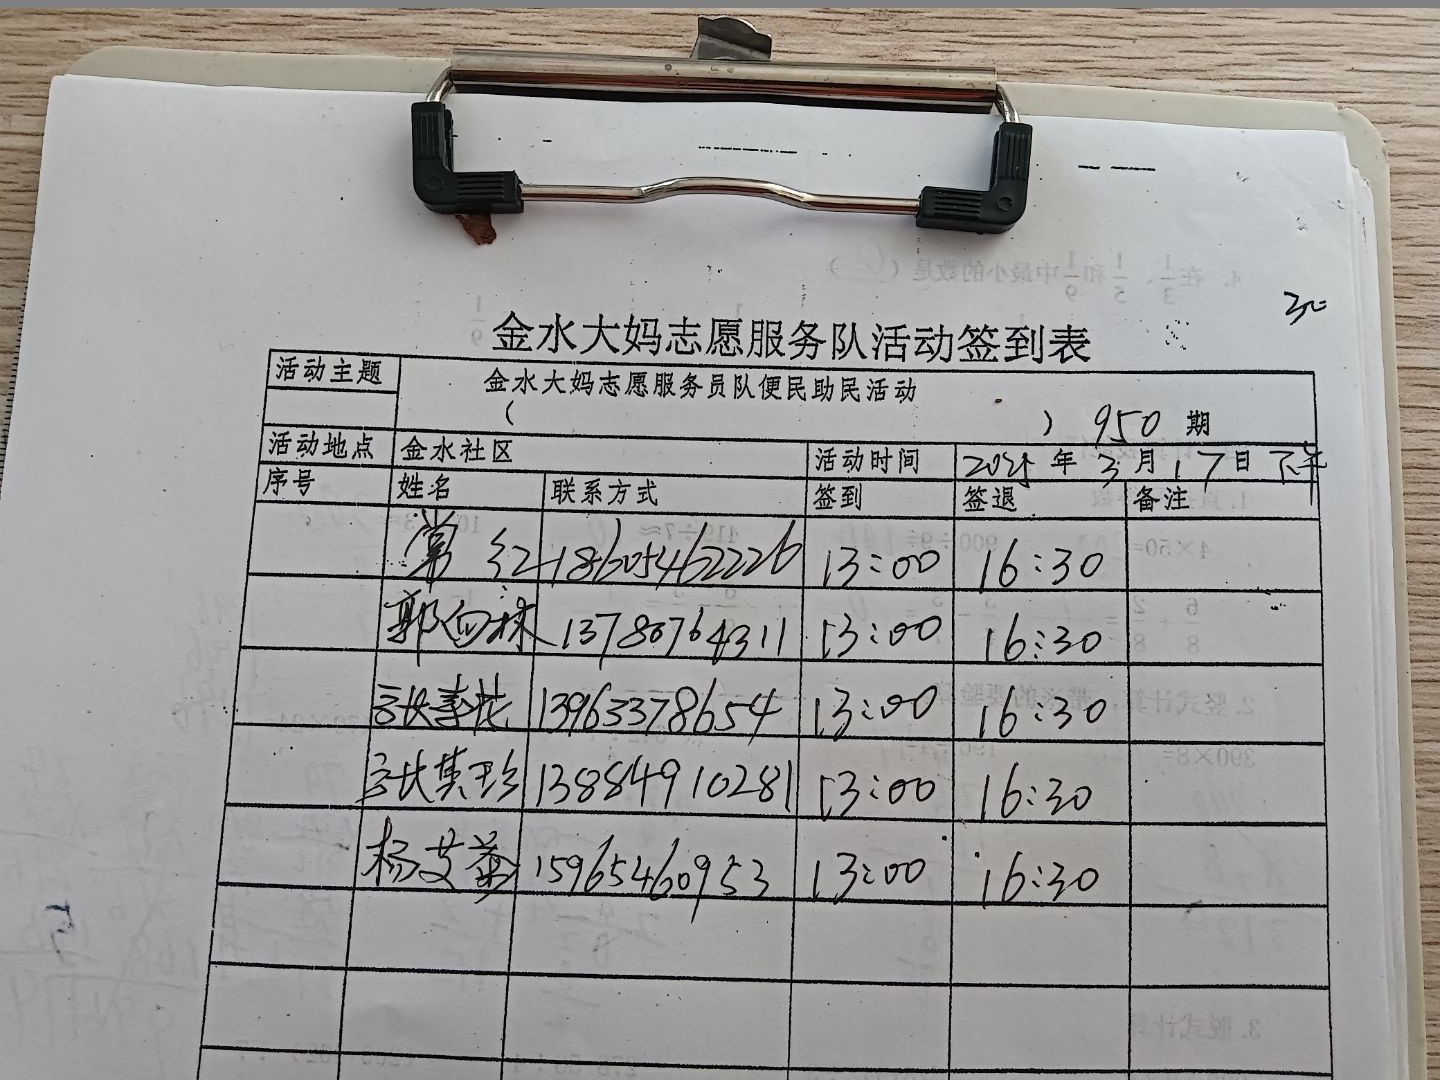 金水大妈志愿服务队活动签到表
活动主题 金水大妈志愿服务员队便民助民活动
( ) 950 期
活动地点 金水社区 活动时间 年 3 月 17 日 下午
序号 姓名 联系方式 签到 签退 备注
常红 18605462226 13:00 16:30
郭向林 13780764311 13:00 16:30
张春花 13963378654 13:00 16:30
张其珍 13884910281 13:00 16:30
杨艾 15965460953 13:00 16:30